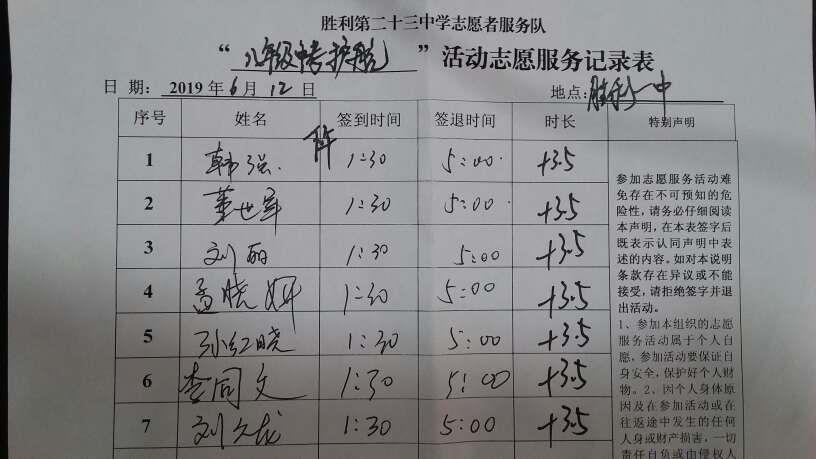 胜利第二十三中学志愿者服务队
“八年级中考护航”活动志愿服务记录表
日 期: 2019 年 6 月 12 日 地点: 胜利一中
序号 姓名 签到时间 签退时间 时长 特别声明
1 韩强 1:30 5:00 +3.5
2 董世军 1:30 5:00 +3.5
3 刘丽 1:30 5:00 +3.5
4 孟晓妍 1:30 5:00 +3.5
5 孙红晓 1:30 5:00 +3.5
6 李同文 1:30 5:00 +3.5
7 刘久龙 1:30 5:00 +3.5
参加志愿服务活动难
免存在不可预知的危
险性,请务必仔细阅读
本声明,在本表签字后
既表示认同声明中表
述的内容。如对本说明
条款存在异议或不能
接受,请拒绝签字并退
出活动。
1、参加本组织的志愿
服务活动属于个人自
愿,参加活动要保证自
身安全,保护好个人财
物。2、因个人身体原
因及在参加活动或在
往返途中发生的任何
人身或财产损害,一切
责任自负或由侵权人